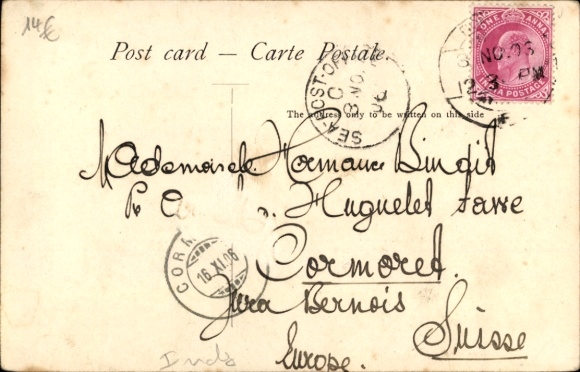 14€
Post card — Carte Postale.
ONE ANNA
INDIA POSTAGE
NO. 06
PM
SEA POST OFF
C
8 NO.
06
The address only to be written on this side
Mademoiselle Hermance
Huguelet
Cormoret.
COR
16 XI.06
Jura Bernois
Suisse
Europe.
Inde